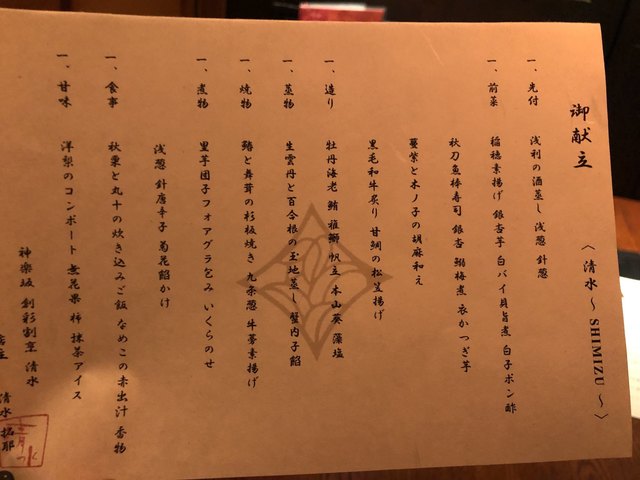 御献立
〈 清水 ～ SHIMIZU ～ 〉
一、先付　浅利の酒蒸し 浅葱 針葱
一、前菜　稲穂素揚げ 銀杏芋 白バイ貝旨煮 白子ポン酢
秋刀魚棒寿司 銀杏 鰯梅煮 衣かつぎ芋
蔓紫と木ノ子の胡麻和え
黒毛和牛炙り 甘鯛の松笠揚げ
一、造り　牡丹海老 鮪 稚鰤 帆立 本山葵 藻塩
一、蒸物　生雲丹と百合根の玉地蒸し 蟹内子餡
一、焼物　鰆と舞茸の杉板焼き 九条葱 牛蒡素揚げ
一、煮物　里芋団子フォアグラ包み いくらのせ
浅葱 針唐辛子 菊花餡かけ
一、食事　秋栗と丸十の炊き込みご飯 なめこの赤出汁 香物
一、甘味　洋梨のコンポート 無花果 柿 抹茶アイス
神楽坂 創彩割烹 清水
店主 清水